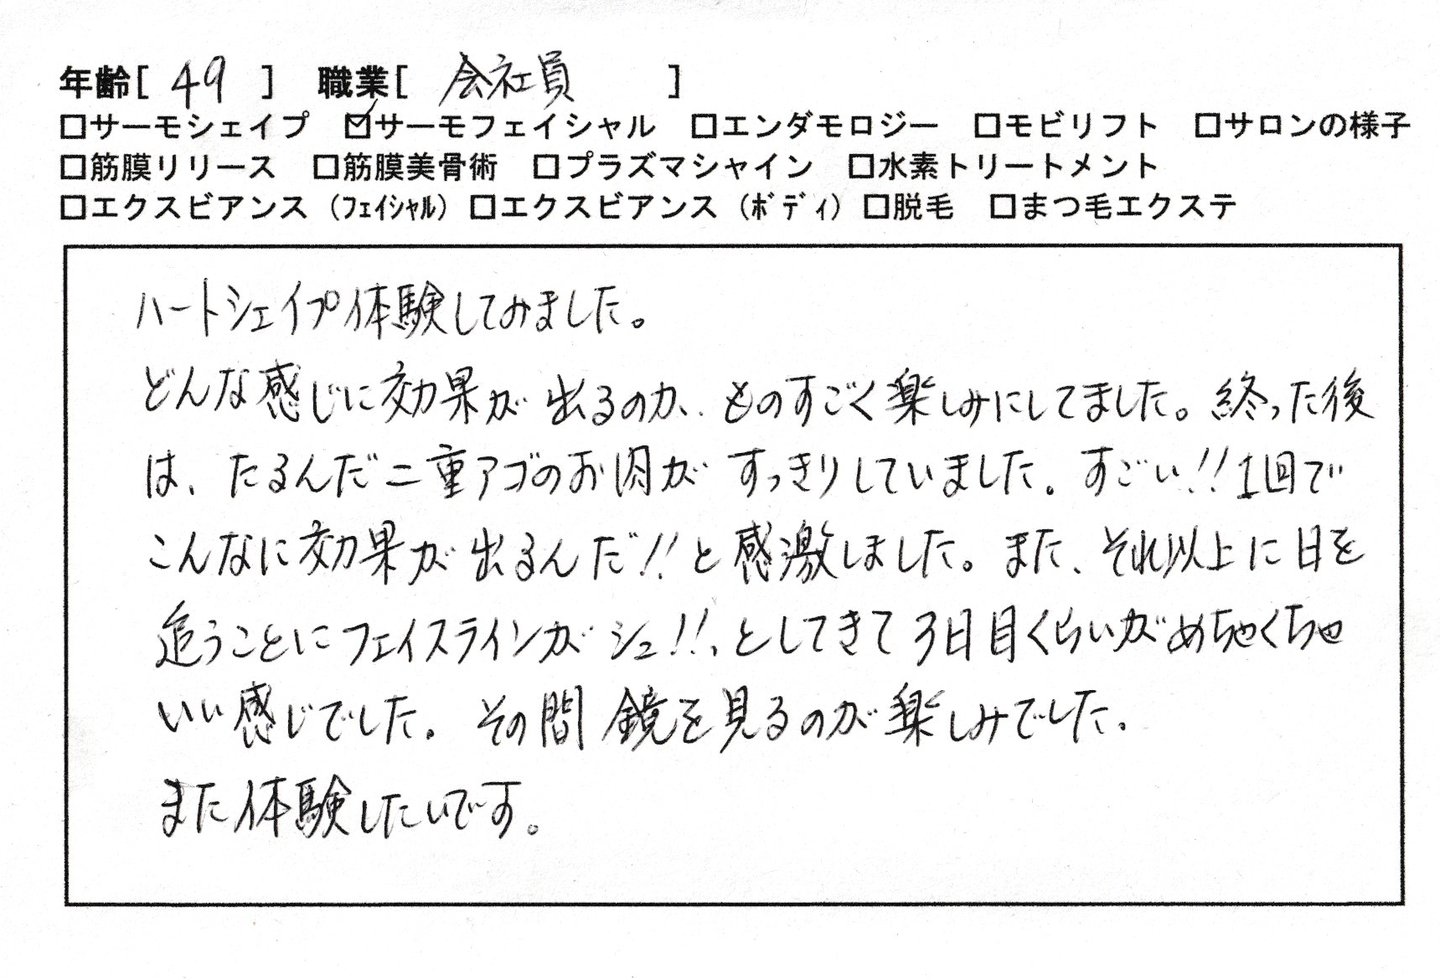 年齢[ 49 ] 職業[ 会社員 ]
□サーモシェイプ ☑サーモフェイシャル □エンダモロジー □モビリフト □サロンの様子
□筋膜リリース □筋膜美骨術 □プラズマシャイン □水素トリートメント
□エクスビアンス（ﾌｪｲｼｬﾙ）□エクスビアンス（ﾎﾞﾃﾞｨ）□脱毛 □まつ毛エクステ
ハートシェイプ体験してみました。
どんな感じに効果が出るのか、ものすごく楽しみにしてました。終った後
は、たるんだ二重アゴのお肉がすっきりしていました。すごい!!1回で
こんなに効果が出るんだ!!と感激しました。また、それ以上に日を
追うことにフェイスラインがシュ!!、としてきて3日目くらいがめちゃくちゃ
いい感じでした。その間鏡を見るのが楽しみでした。
また体験したいです。